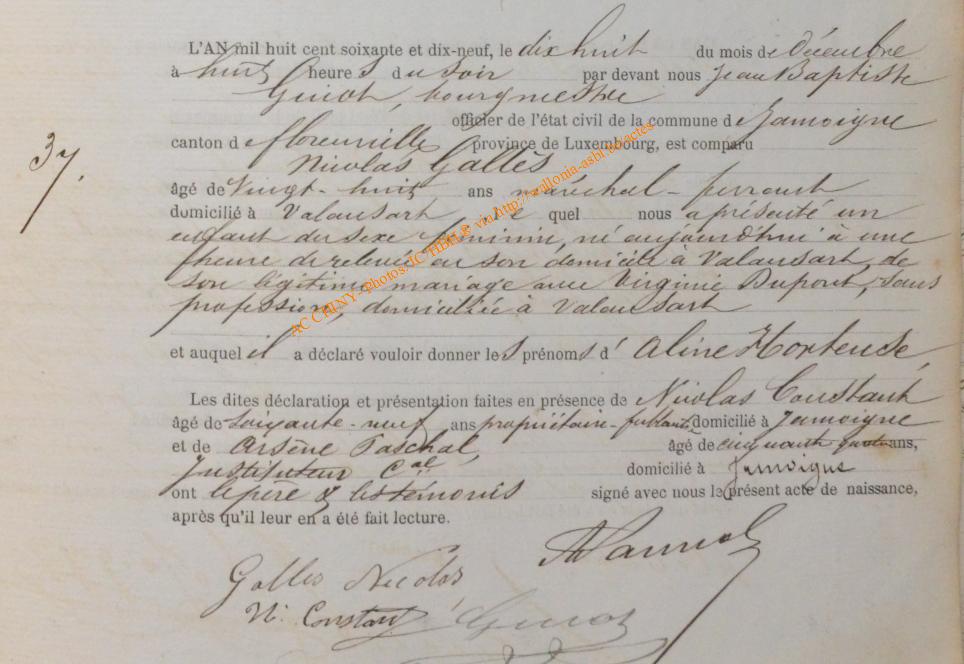 L'AN mil huit cent soixante et dix-neuf, le dix huit du mois de décembre
à huit heures du soir par devant nous Jean Baptiste
Guiot, bourgmestre
officier de l'état civil de la commune de Jamoigne
37.
canton de florenville province de Luxembourg, est comparu
Nicolas Gallès
âgé de Vingt-huit ans maréchal-ferrant
domicilié à Valansart, le quel nous a présenté un
enfant du sexe féminin, né aujourd'hui à une
heure de relevée en son domicile à Valansart, de
son légitime mariage avec Virginie Dupont, sans
profession, domiciliée à Valansart
et auquel il a déclaré vouloir donner les prénoms d' Aline Hortense,
Les dites déclaration et présentation faites en présence de Nicolas Constant
âgé de Soixante-neuf ans propriétaire- domicilié à Jamoigne
et de Arsène Paschal, âgé de cinquante quatre ans,
Instituteur Cal domicilié à Jamoigne
ont le père & les témoins signé avec nous le présent acte de naissance,
après qu'il leur en a été fait lecture.
Galles Nicolas
N. Constant Guiot
AC CHINY - Photos JC HBLG via http://wallonia-asbl.be/actes